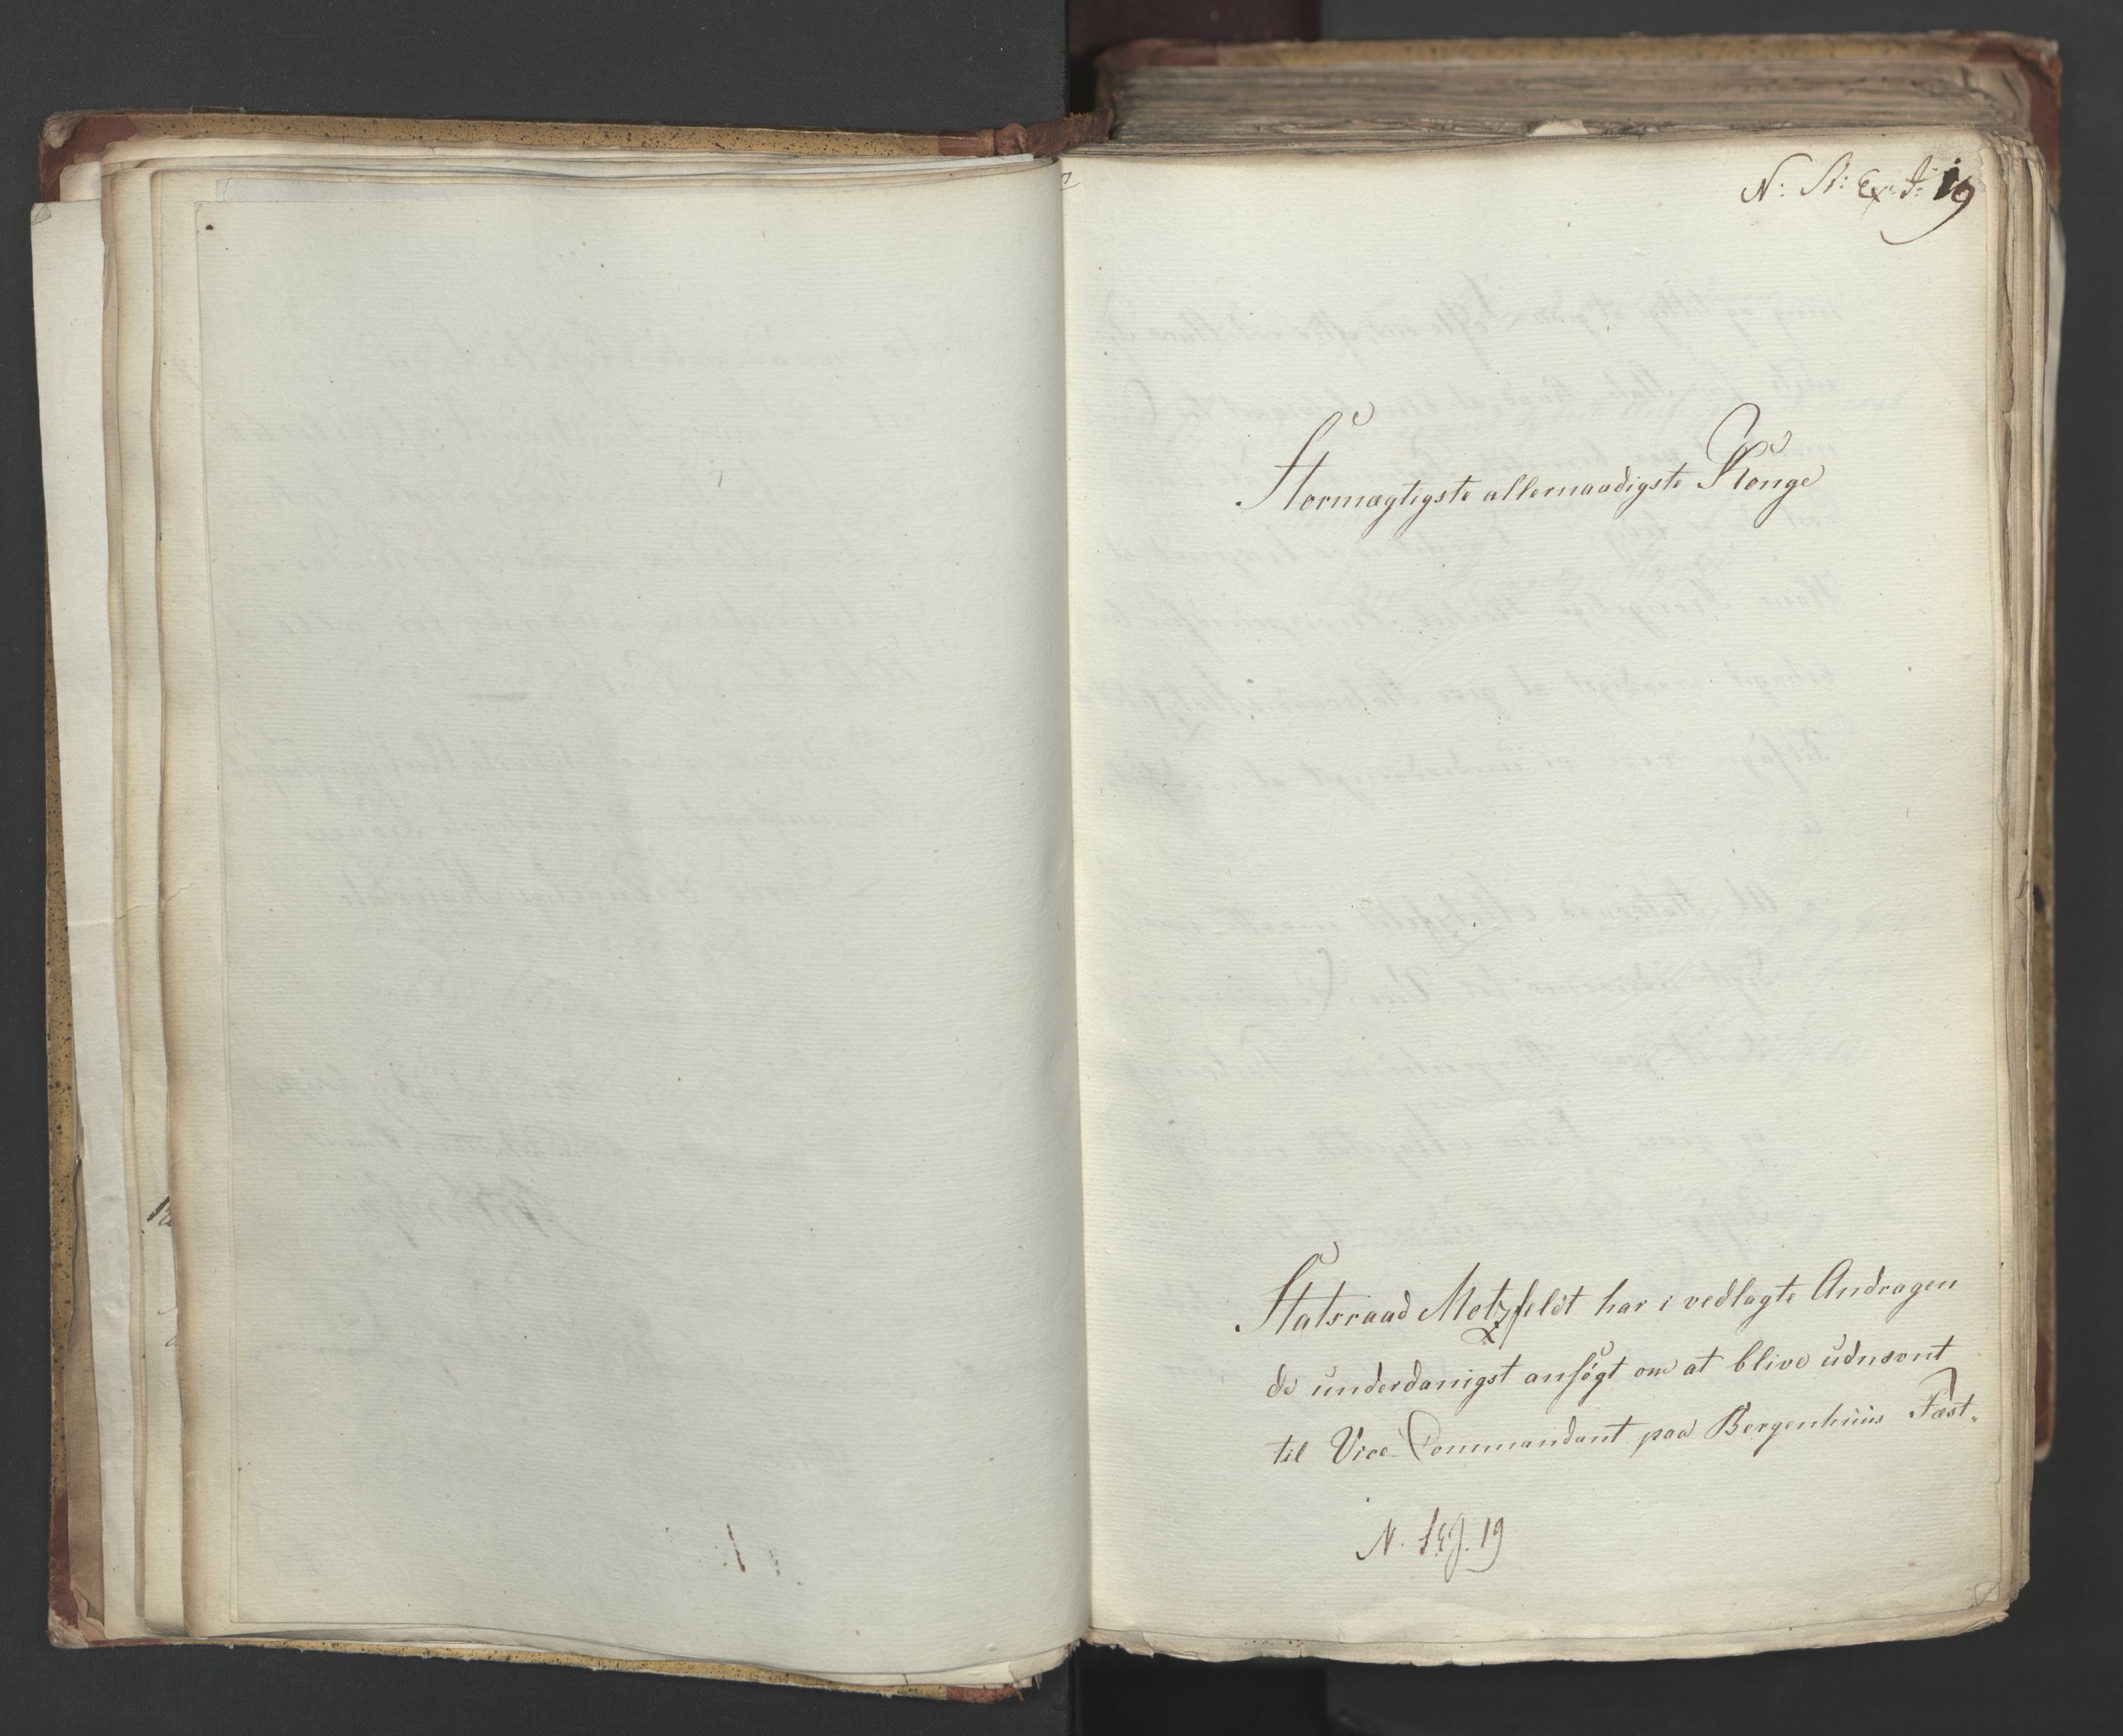 N: St: Ex: J: 19
Stormægtigste allernaadigste Konge
Statsraad Motzfeldt har i vedlagte Andragen
de underdanigst ansøgt om at blive udnævnt
til Vice-Commandant paa Bergenhuus Fæst„
N. 19